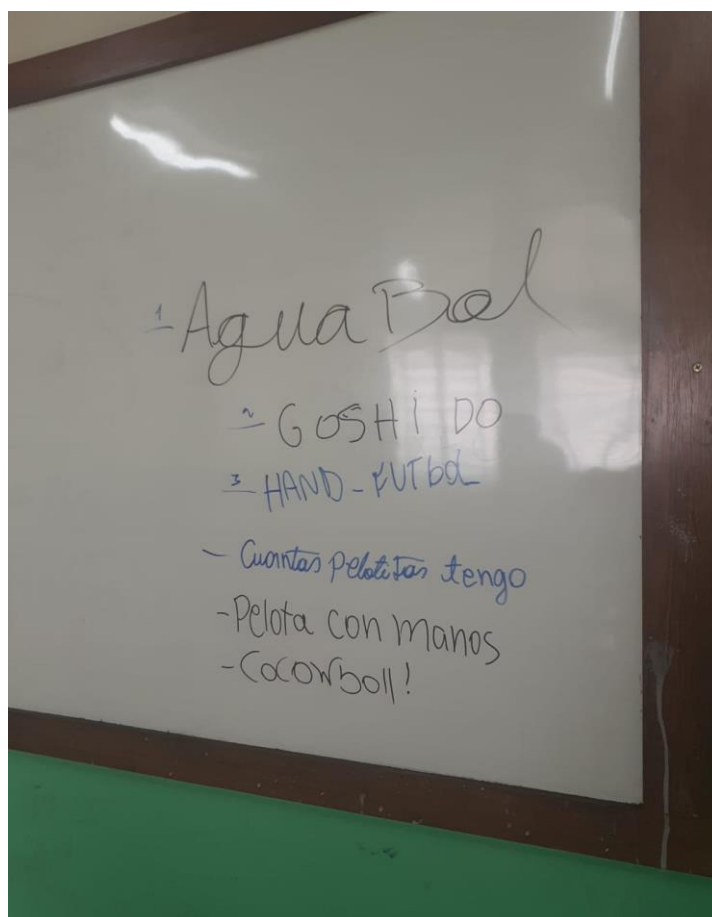 1- Agua Bol
2- GOSHI DO
3- HAND-FUTbOL
- Cuantas pelotitas tengo
- Pelota con manos
- Cocowboll!